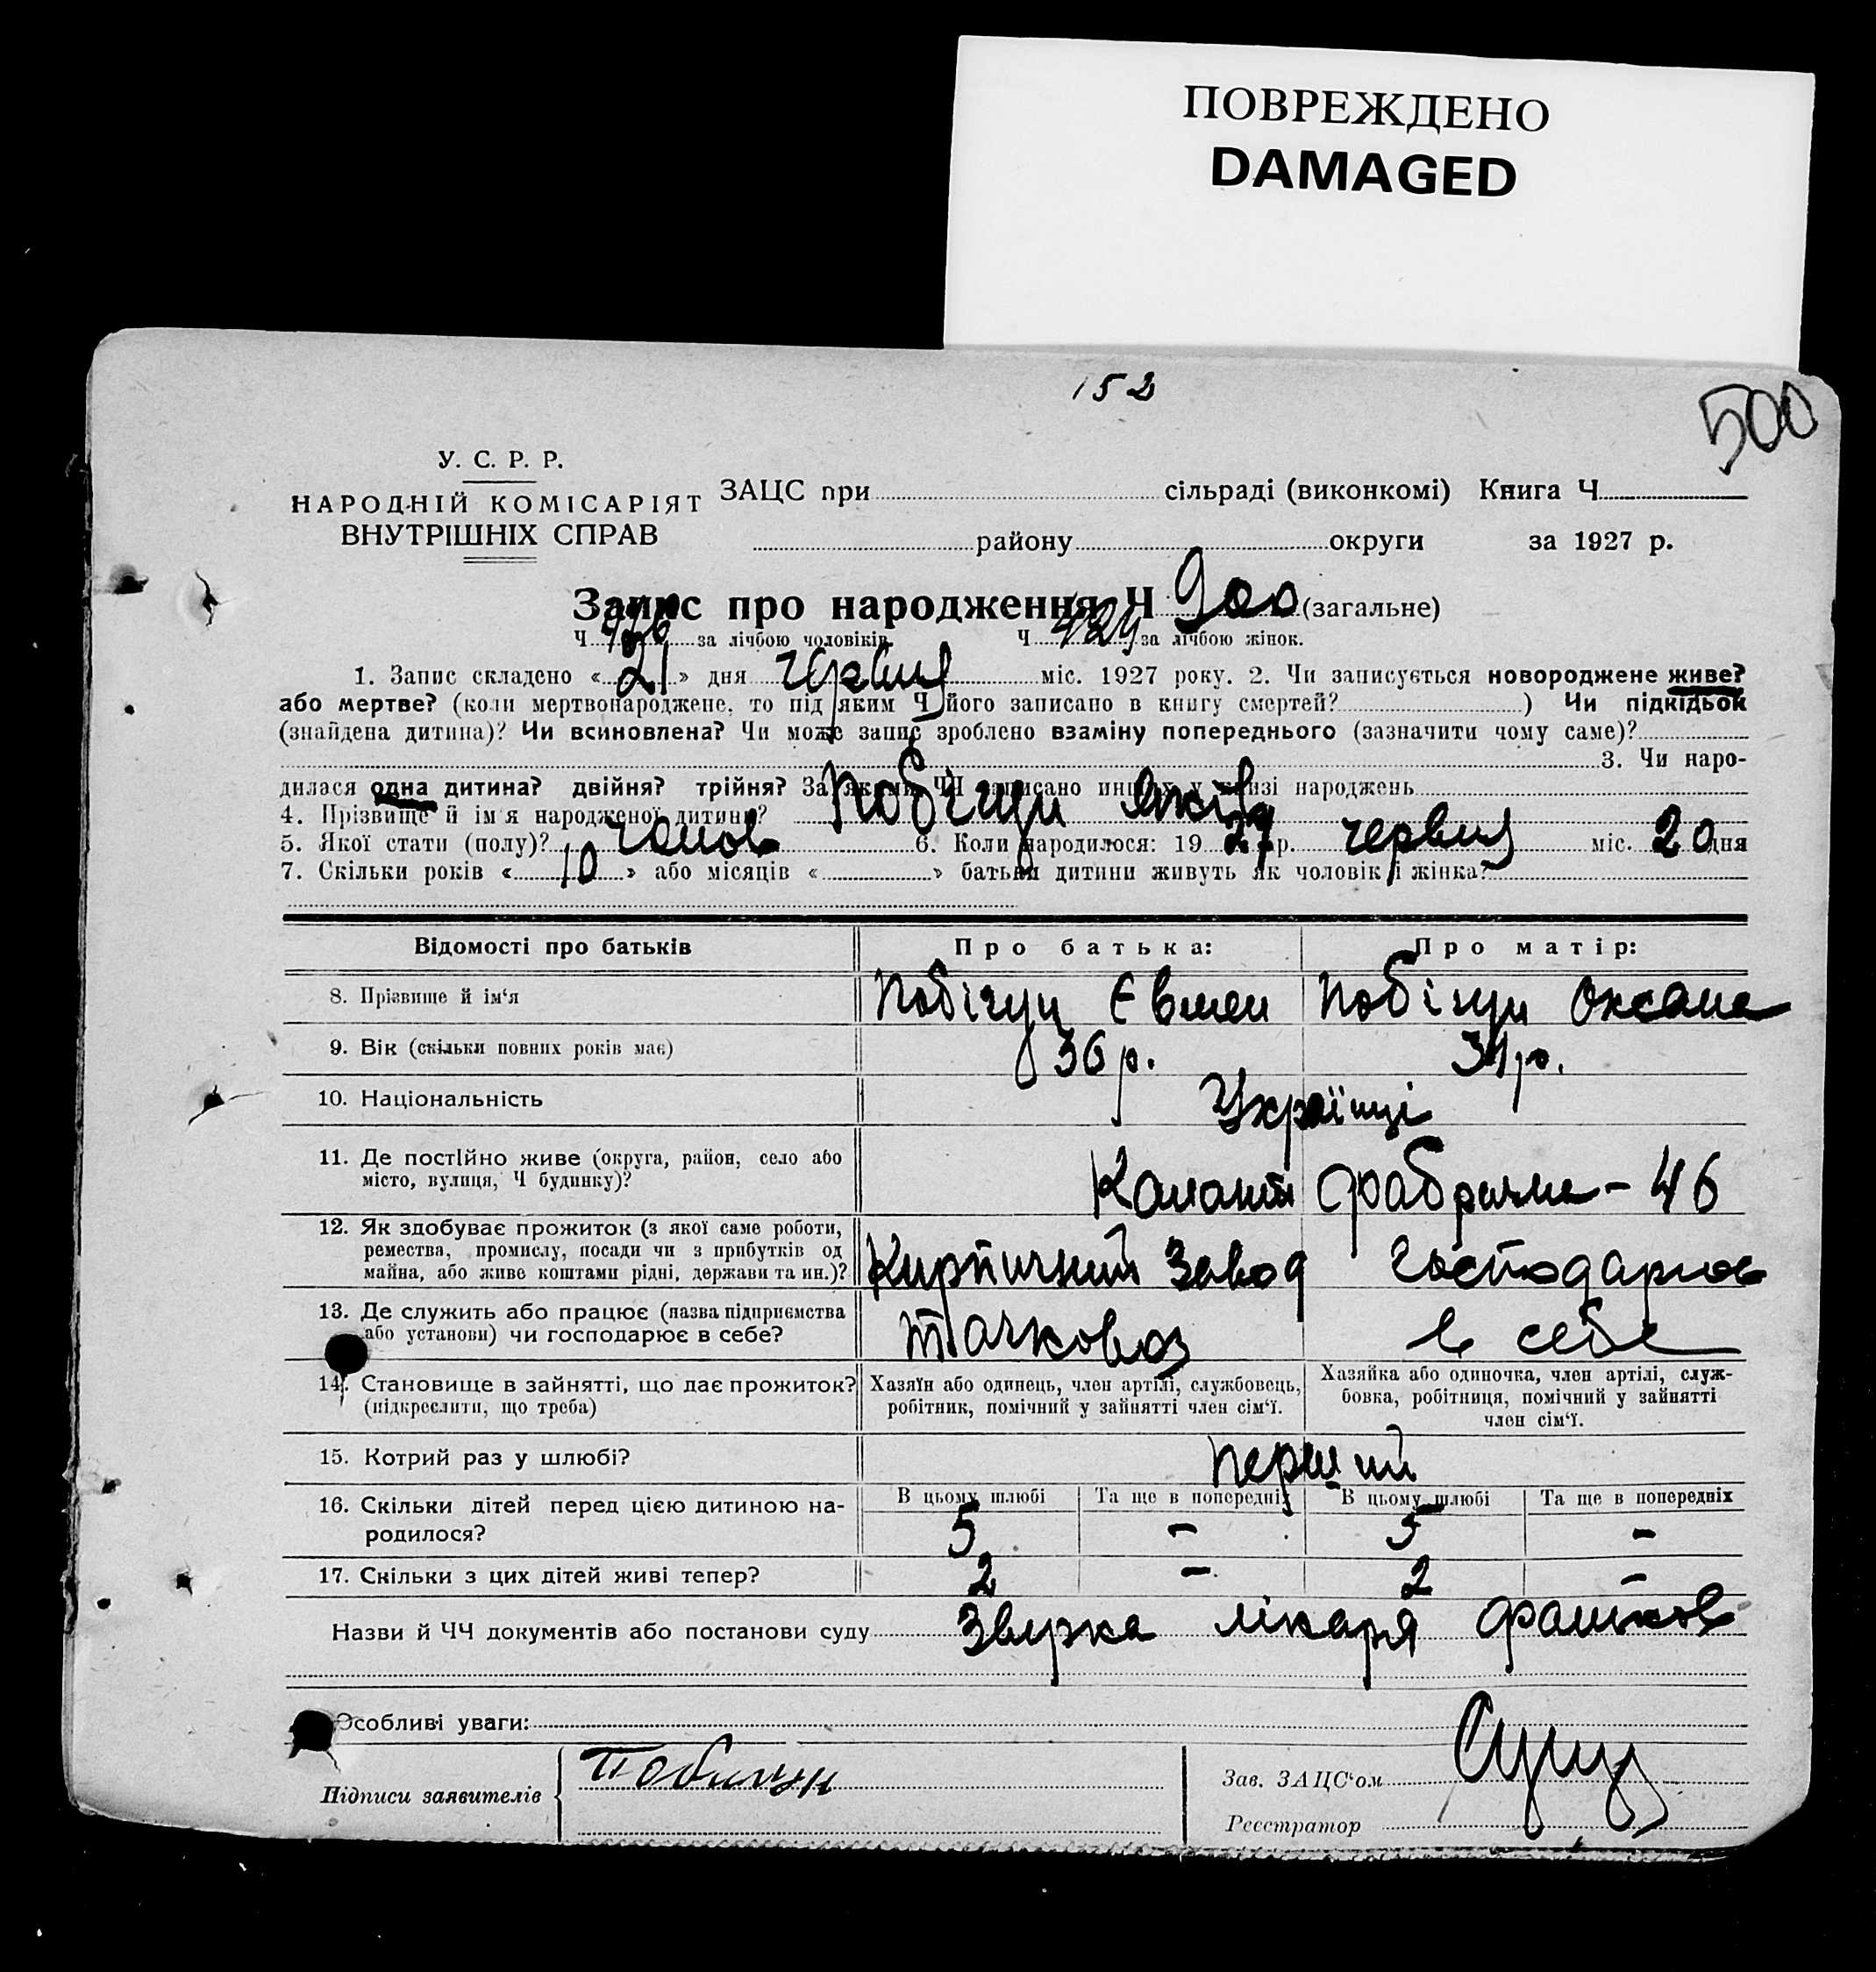 ПОВРЕЖДЕНО
DAMAGED
152
500
У. С. Р. Р.
НАРОДНІЙ КОМІСАРІЯТ
ВНУТРІШНІХ СПРАВ
ЗАЦС при сільраді (виконкомі) Книга Ч.
району округи за 1927 р.
Запис про народження Ч 900 (загальне)
Ч за лічбою чоловіків. Ч за лічбою жінок.
1. Запис складено « 21 » дня червня міс. 1927 року. 2. Чи записується новороджене живе?
або мертве? (коли мертвонароджене, то під яким Ч його записано в книгу смертей? ) Чи підкідьок
(знайдена дитина)? Чи всиновлена? Чи може запис зроблено взаміну попереднього (зазначити чому саме)?
3. Чи наро-
дилася одна дитина? двійня? трійня? За якими ЧЧ записано инших у книзі народжень
4. Прізвище й ім'я народженої дитини? Побігун Яків
5. Якої стати (полу)? 6. Коли народилося: 19 27 р. червня міс. 20 дня
7. Скільки років « 10 » або місяців « » батьки дитини живуть як чоловік і жінка?
Відомості про батьків Про батька: Про матір:
8. Прізвище й ім'я Побігун Євмен Побігун Оксана
9. Вік (скільки повних років має) 36 р. 31 р.
10. Національність Українці
11. Де постійно живе (округа, район, село або
місто, вулиця, Ч будинку)? - 46
12. Як здобуває прожиток (з якої саме роботи,
ремества, промислу, посади чи з прибутків од
майна, або живе коштами рідні, держави та ин.)? Кирпичний завод Господарює
13. Де служить або працює (назва підприємства
або установи) чи господарює в себе? тачковоз в себе
14. Становище в зайнятті, що дає прожиток?
(підкреслити, що треба)
Хазяїн або одинець, член артілі, службовець,
робітник, помічний у зайнятті член сім'ї.
Хазяйка або одиночка, член артілі, служ-
бовка, робітниця, помічний у зайнятті
член сім'ї.
15. Котрий раз у шлюбі? перший
16. Скільки дітей перед цією дитиною на-
родилося?
В цьому шлюбі Та ще в попередніх В цьому шлюбі Та ще в попередніх
5 - 5 -
17. Скільки з цих дітей живі тепер? 2 - 2 -
Назви й ЧЧ документів або постанови суду лікаря
Особливі уваги:
Підписи заявителів Побигун
Зав. ЗАЦС'ом
Реєстратор